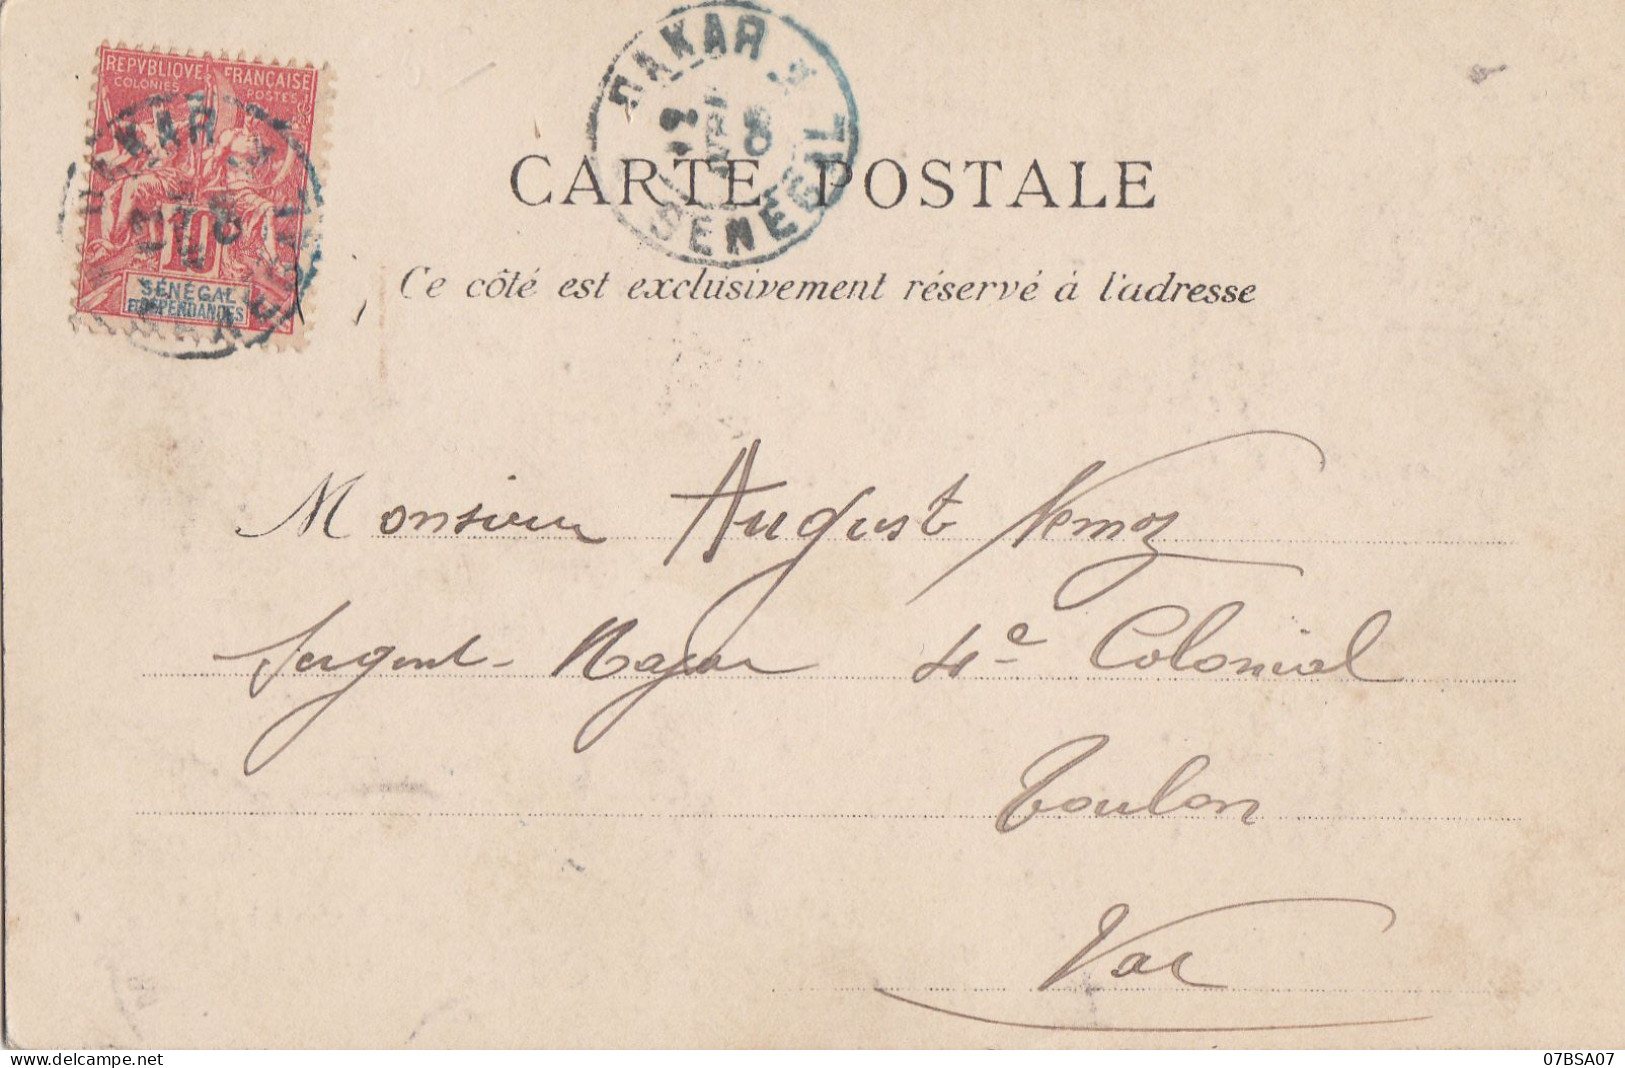 REPVBLIQVE FRANÇAISE
COLONIES POSTES
10
SÉNÉGAL
ET DÉPENDANCES
DAKAR
SENEGAL
DAKAR
SENEGAL
CARTE POSTALE
Ce côté est exclusivement réservé à l'adresse
Monsieur August Nemoz
Sergent-Major 4e Colonial
Toulon
Var
delcampe.net
07BSA07